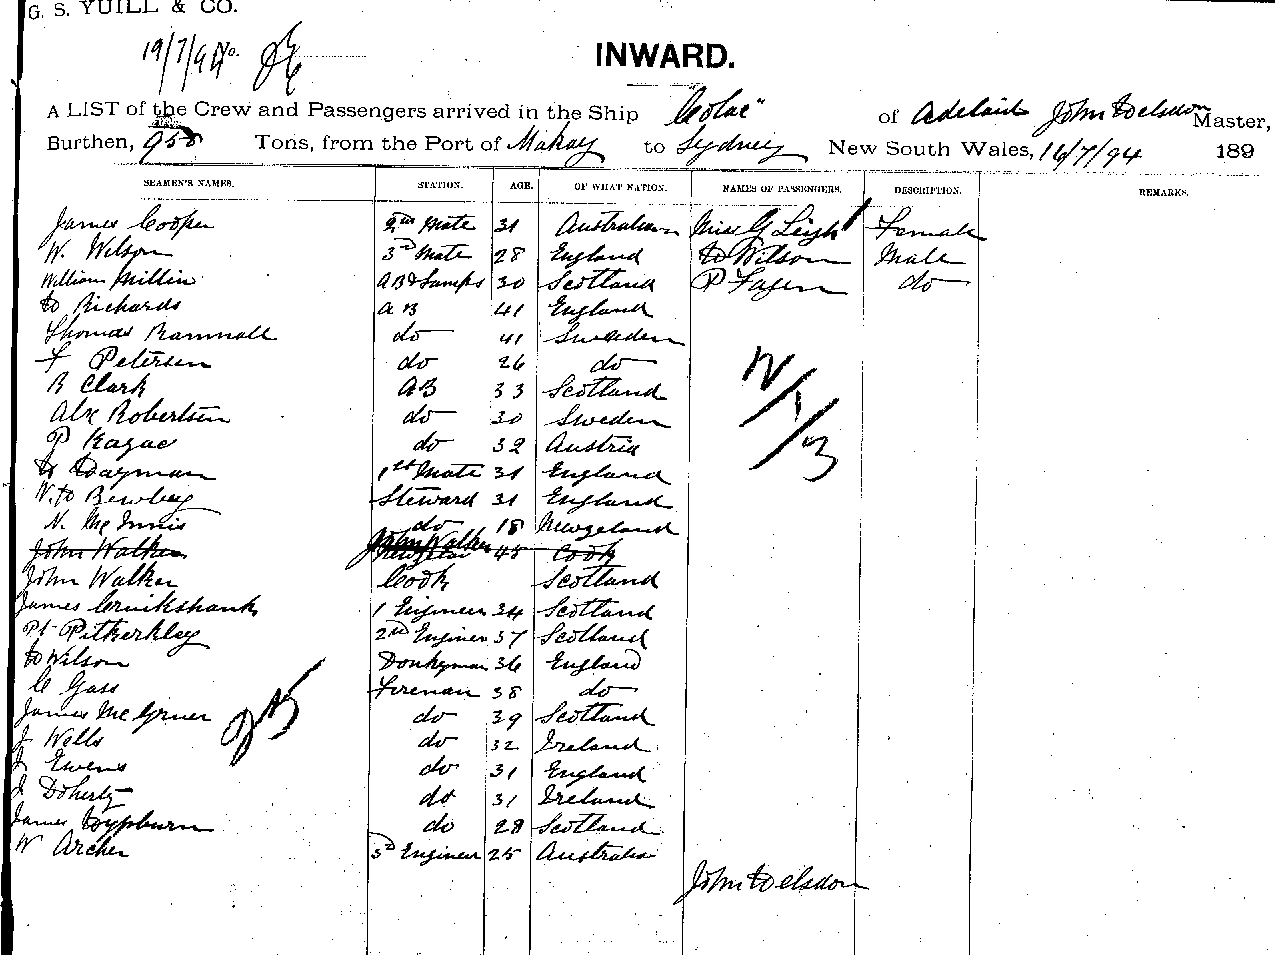 G. S. YUILL & CO.
19/7/94
INWARD.
A LIST of the Crew and Passengers arrived in the Ship "Colac" of Adelaide John Master,
Burthen, 958 Tons, from the Port of Makay to Sydney New South Wales, 16/7/94 189
SEAMEN'S NAMES. STATION. AGE. OF WHAT NATION. NAMES OF PASSENGERS. DESCRIPTION. REMARKS.
James Cooper 2nd Mate 31 Australian Miss G Leigh Female
W. Wilson 3rd Mate 28 England Wilson Male
William Millin AB & Lamps 30 Scotland P Fagen do
Richards AB 41 England
Thomas Ramnall do 41 Sweden
F Petersen do 26 do
R Clark AB 33 Scotland
Alx Robertson do 30 Sweden
P Kazac do 32 Austria
Dayman 1st Mate 31 England
W. H Bewley Steward 31 England
N. McInnis do 18 Newzeland
John Walker John Walker 45 Cook
John Walker Cook Scotland
James Cruikshank 1 Engineer 34 Scotland
Pitkerkley 2nd Engineer 37 Scotland
Wilson Donkyman 36 England
C Gass Fireman 38 do
James do 39 Scotland
J Wells do 32 Ireland
J Ewens do 31 England
J Doherty do 31 Ireland
James Hypburn do 28 Scotland
W Archer 3rd Engineer 25 Australia
12/1/3
25
John